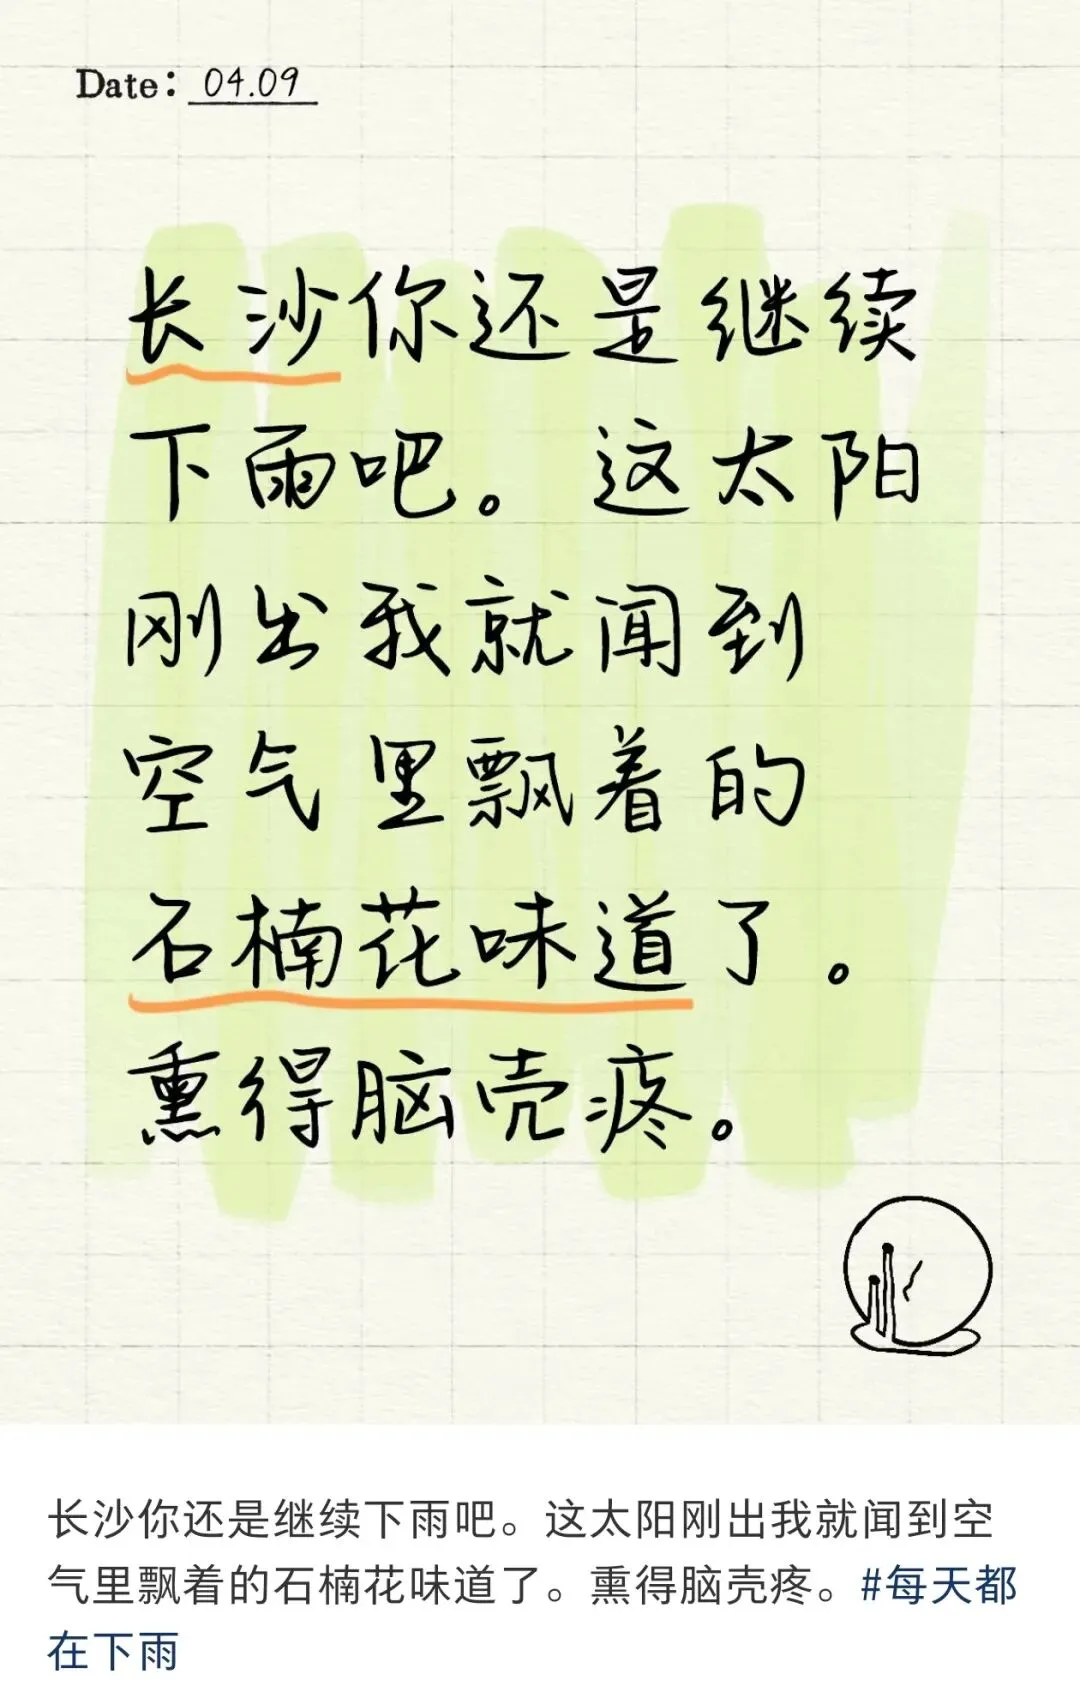 Date: 04.09
长沙你还是继续
下雨吧。这太阳
刚出我就闻到
空气里飘着的
石楠花味道了。
熏得脑壳疼。
长沙你还是继续下雨吧。这太阳刚出我就闻到空
气里飘着的石楠花味道了。熏得脑壳疼。#每天都
在下雨